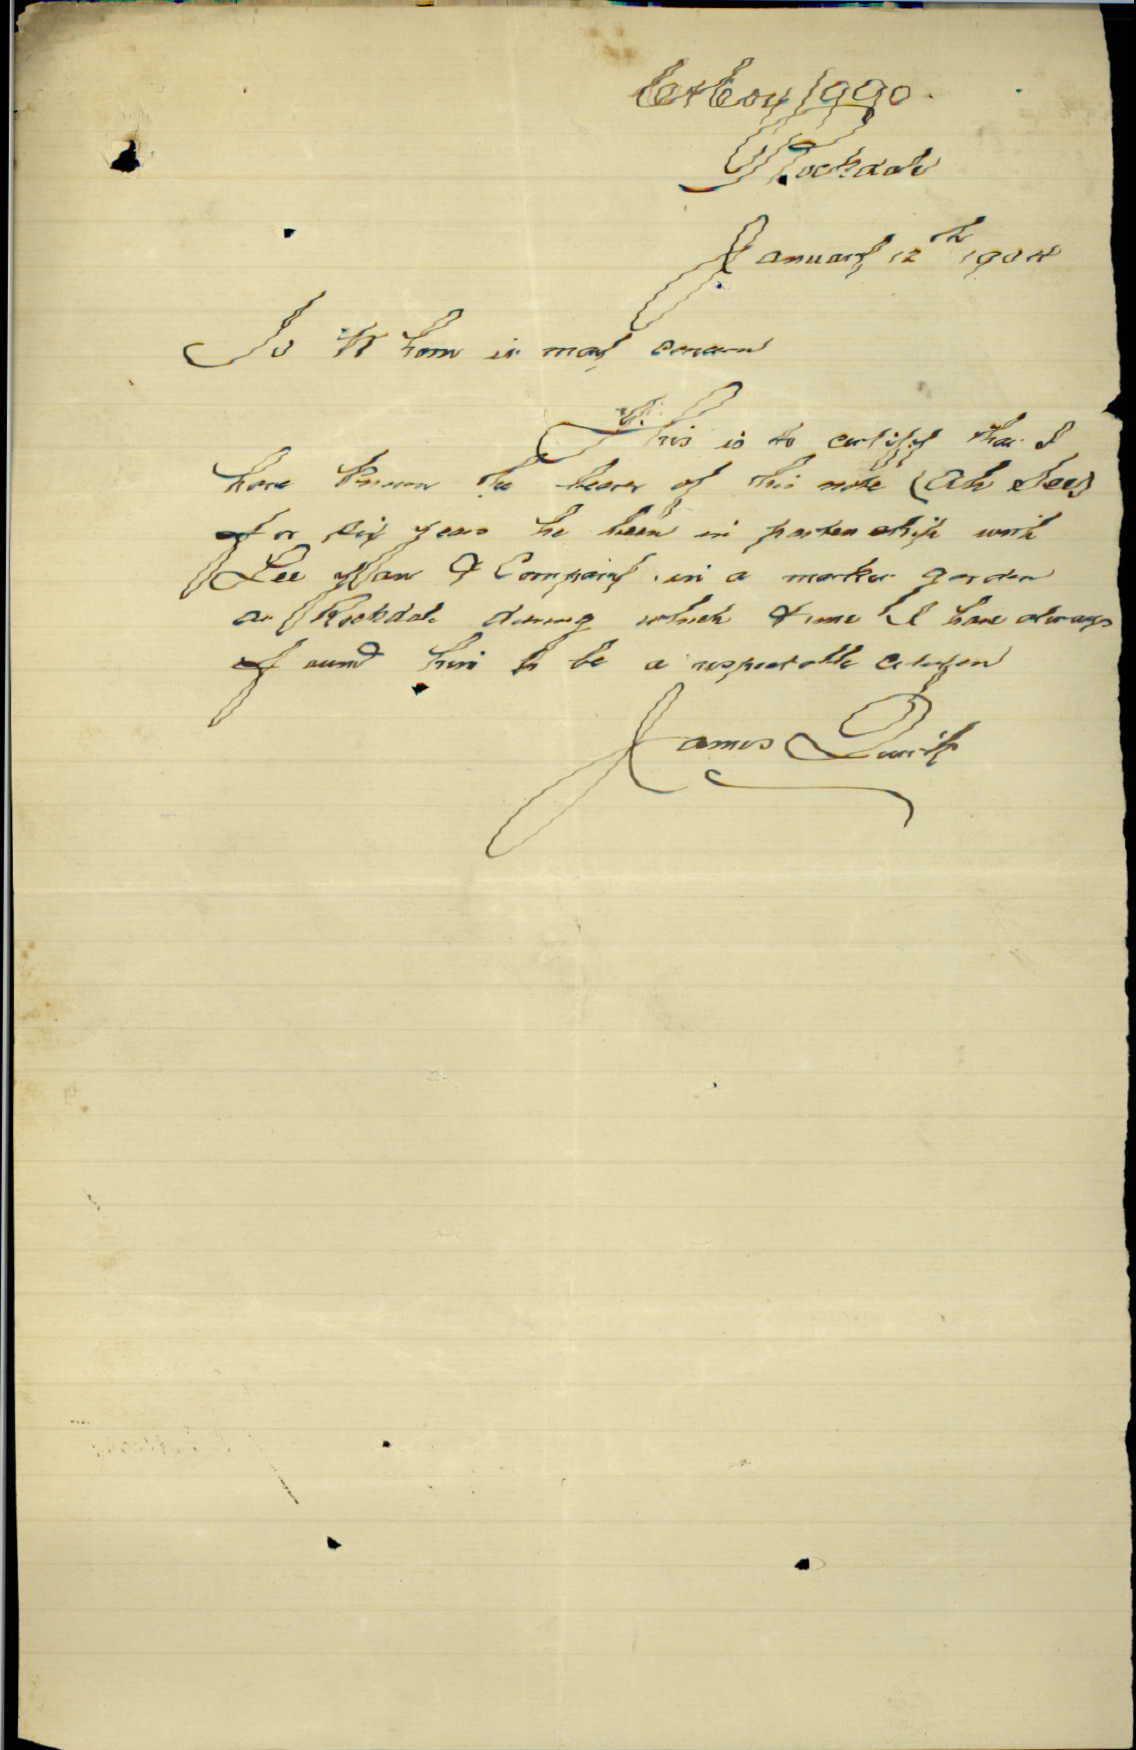 Rockdale
January 12th 1904
To Whom it may concern
This is to certify that I
have known the bearer of this note (Ah See)
for six years he been in partnership with
Lee & Company in a market garden
at Rockdale during which time I have always
found him to be a respectable citizen
James